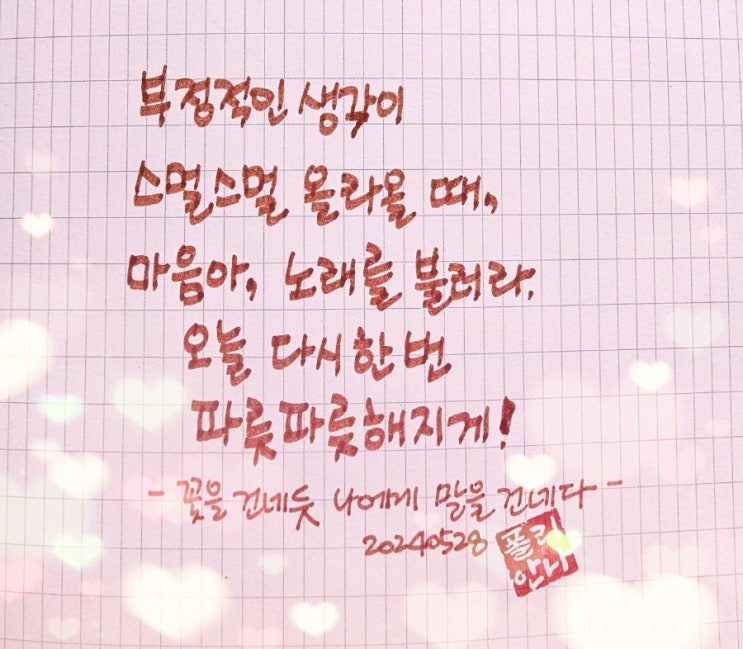 부정적인 생각이
스멀스멀 올라올 때,
마음아, 노래를 불러라.
오늘 다시 한 번
파릇파릇해지게!
- 꽃을 건네듯 나에게 말을 건네다 -
20240528
폴리
안나